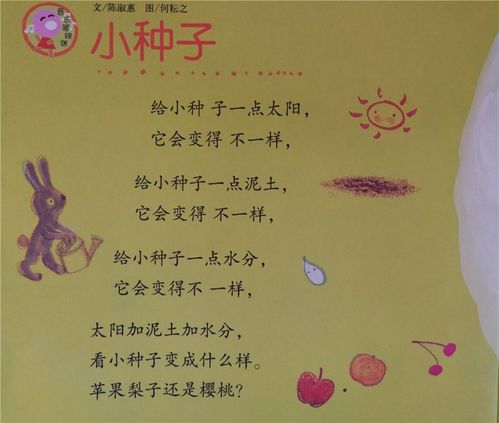 文/陈淑惠 图/何耘之
音乐哆唻咪
小种子
给小种 子一点太阳，
它会变得 不一样，
给小种子一点泥土，
它会变得 不一样，
给小种子一点水分，
它会变得不 一样，
太阳加泥土加水分，
看小种子变成什么样。
苹果梨子还是樱桃？